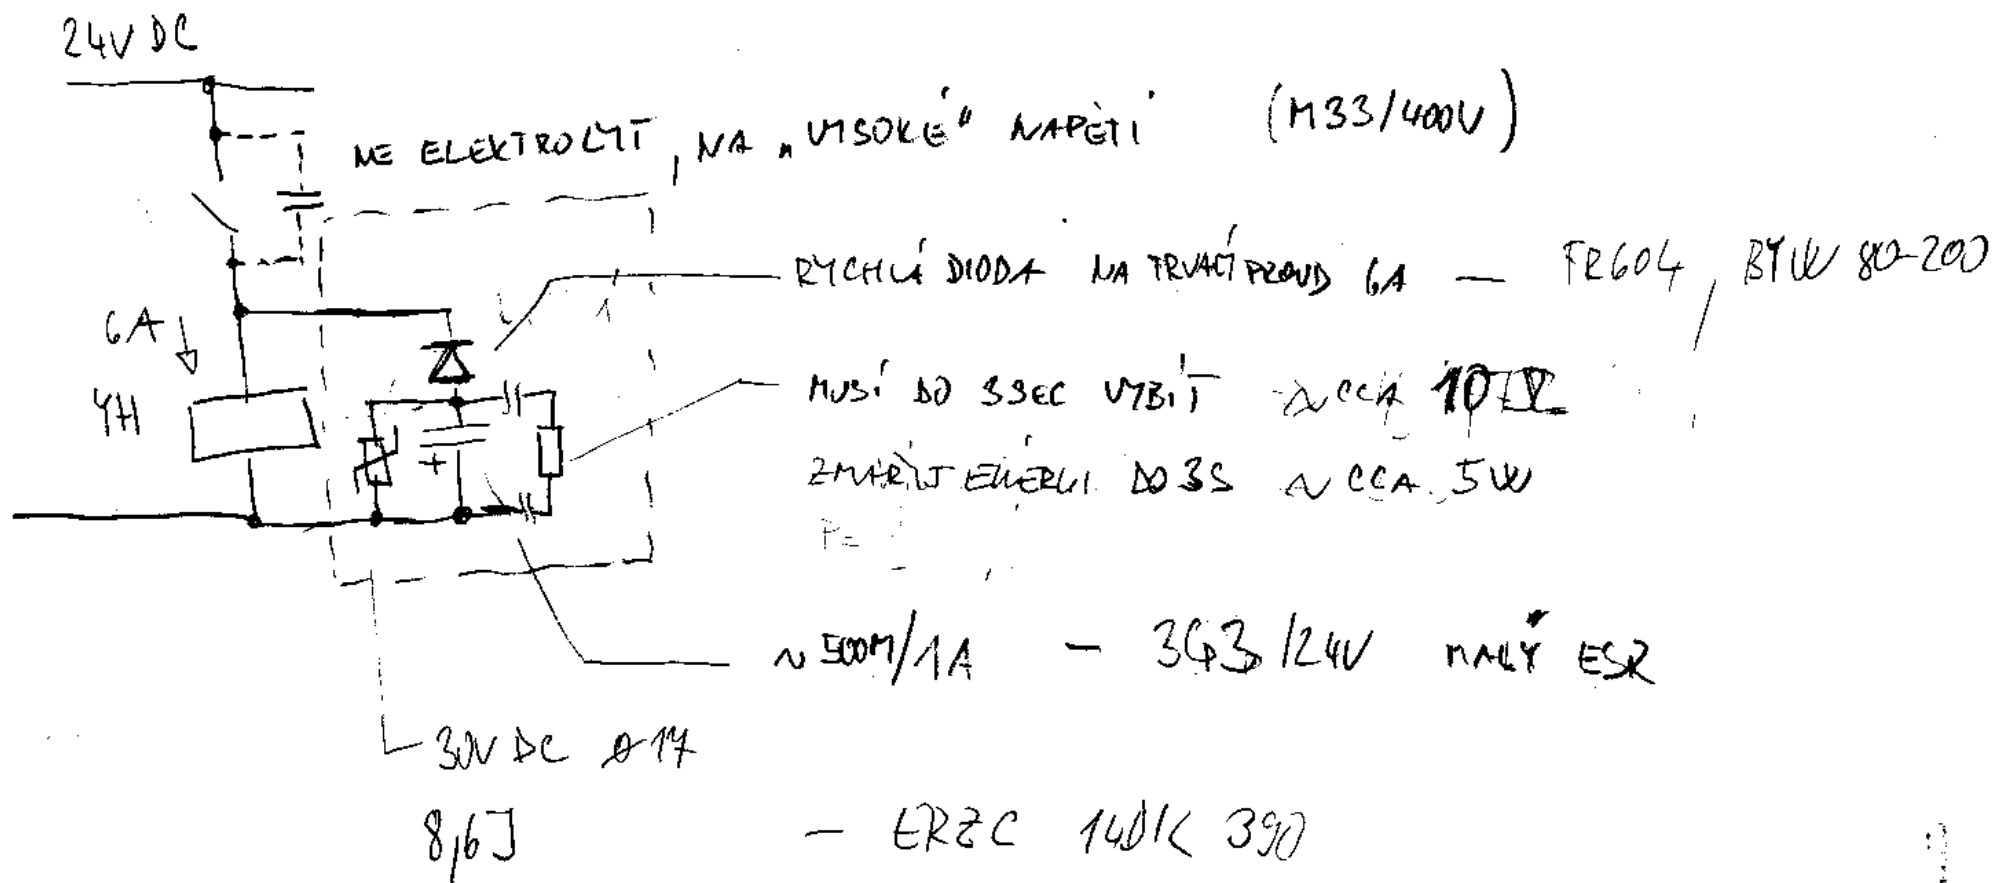 24V DC
NE ELEKTROLYT, NA „VYSOKÉ“ NAPĚTÍ (M33/400V)
RYCHLÁ DIODA NA TRVALÝ PROUD 6A — FR604, BYW 80-200
6A
YH
MUSÍ DO 3SEC VYBÍT ~ CCA 10
ZMAŘIT ENERGII DO 3S ~ CCA 5W
P=
+
~ 500M/1A — 3G3/24V MALÝ ESR
30V DC ø17
8,6J — ERZC 14DK 390